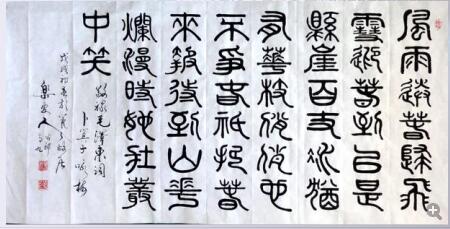 風雨送春歸飛
雪迎春到已是
縣崖百丈冰猶
有華枝俏俏也
不爭春祇把春
來報待到山華
爛漫時她在叢
中笑
敬錄毛澤東詞
卜算子 咏梅
戊戌初春於
樂安人